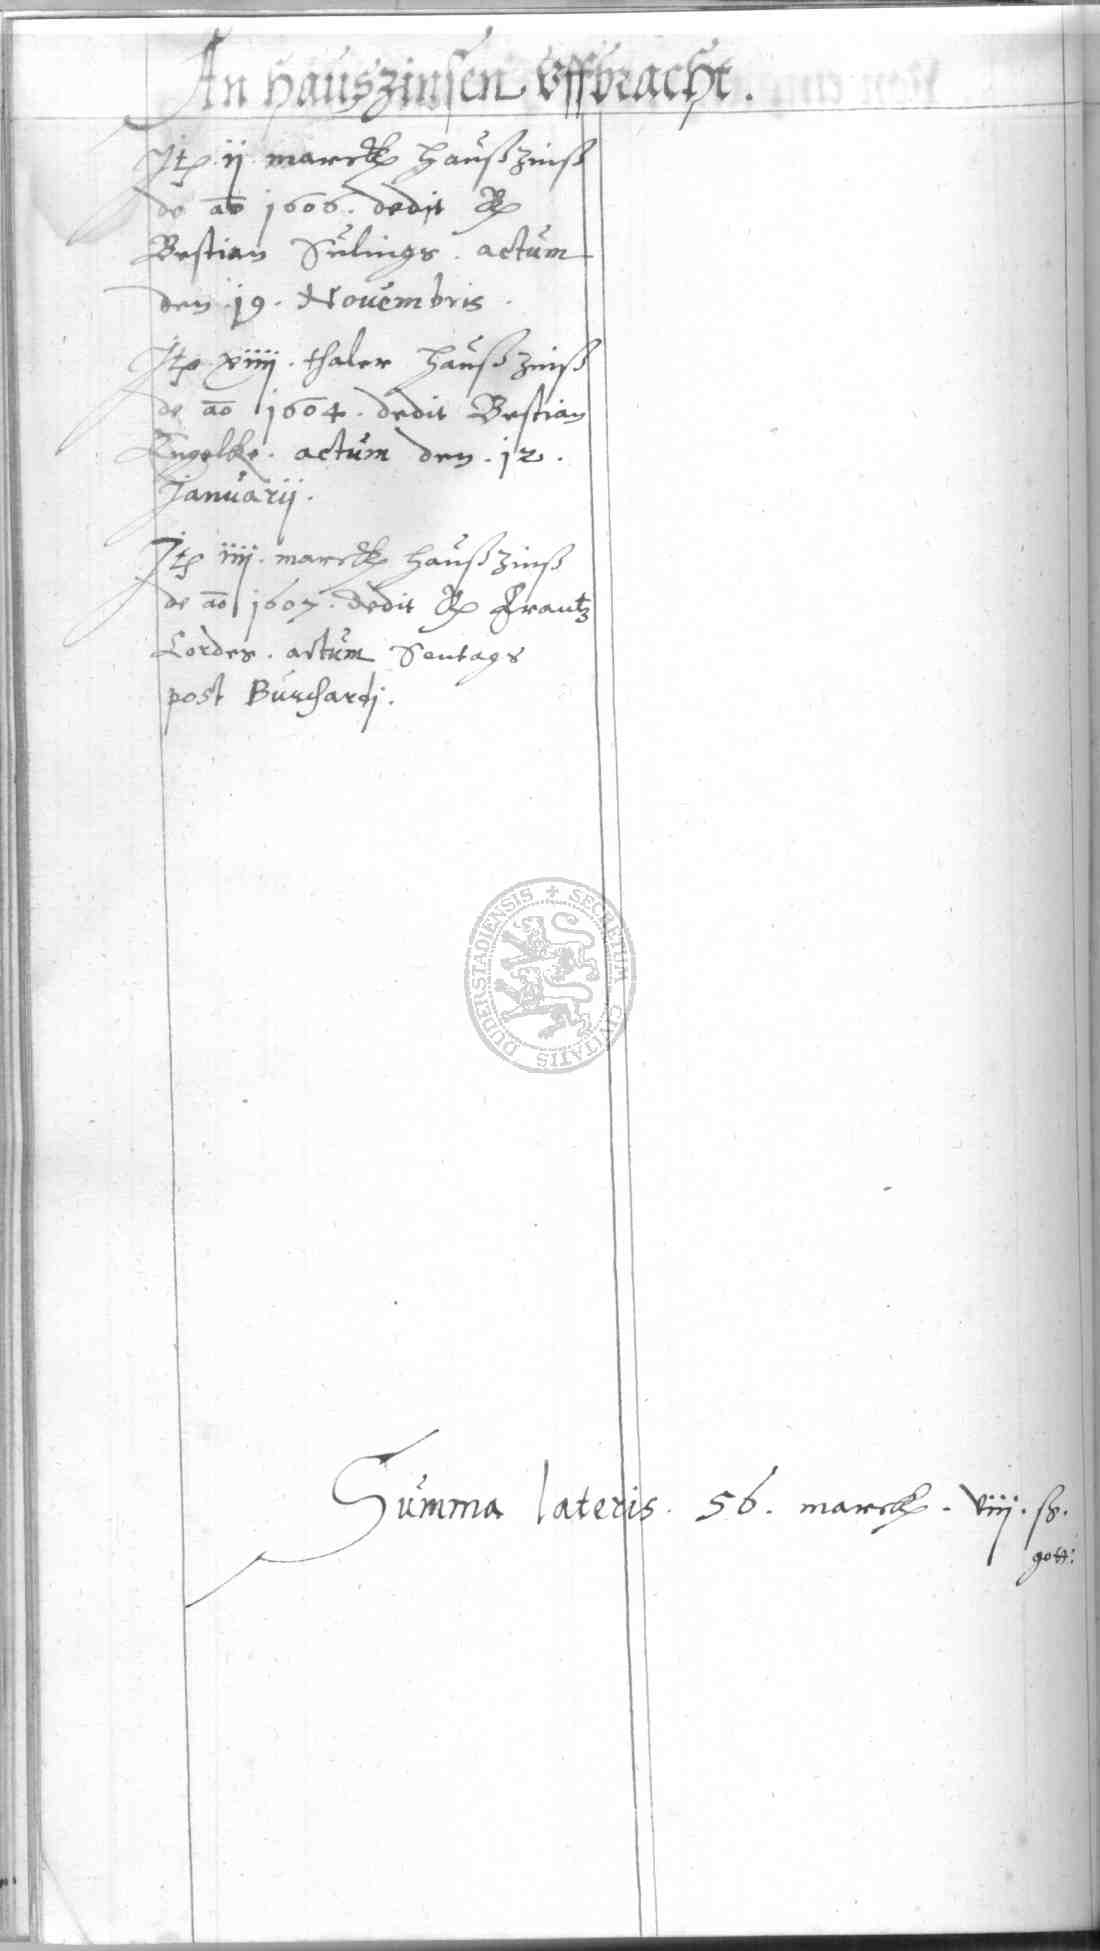 An hauszinsen uffbracht.
Jtem ii marck haußzinß
de ao 1606. dedit R
Bestian Sulings. actum
den .19. Novembris.
Jtem xiiii. thaler haußzinß
de ao 1604. dedit Bestian
Engelke. actum den .12.
Januarii.
Jtem iiii. marck haußzinß
de ao 1607. dedit R Frantz
Cordes. actum Sontags
post Burchardi.
DUDERSTADIENSIS + SECRETUM CIVITATIS
Summa lateris. 56. marck. viiii. ß.
gott: